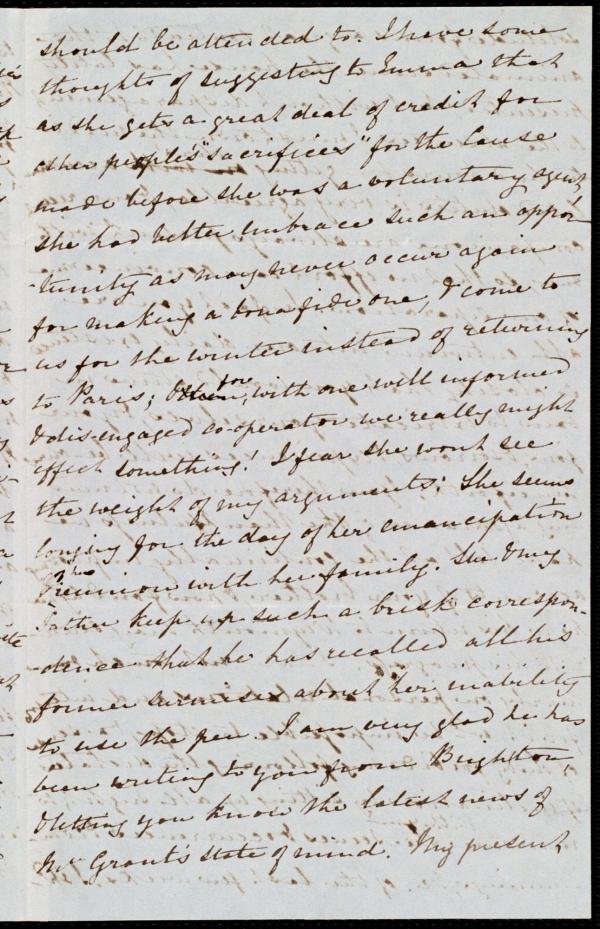 should be attended to. I have some
thoughts of suggesting to Emma that
as she gets a great deal of credit for
other people's "sacrifices" for the Cause
made before she was a voluntary agent,
she had better embrace such an oppor-
-tunity as may never occur again
for making a bona fide one, & come to
us for the winter instead of returning
to Paris; for, with one well informed
& dis-engaged co-operator we really might
effect something! I fear she wont see
the weight of my arguments; She seems
longing for the day of her emancipation
& reunion with her family. She & my
Father keep up such a brisk correspon-
-dence that he has recalled all his
former surmises about her inability
to use the pen. I am very glad he has
been writing to you from Brighton,
& letting you know the latest news of
Mr Grant's state of mind. My present